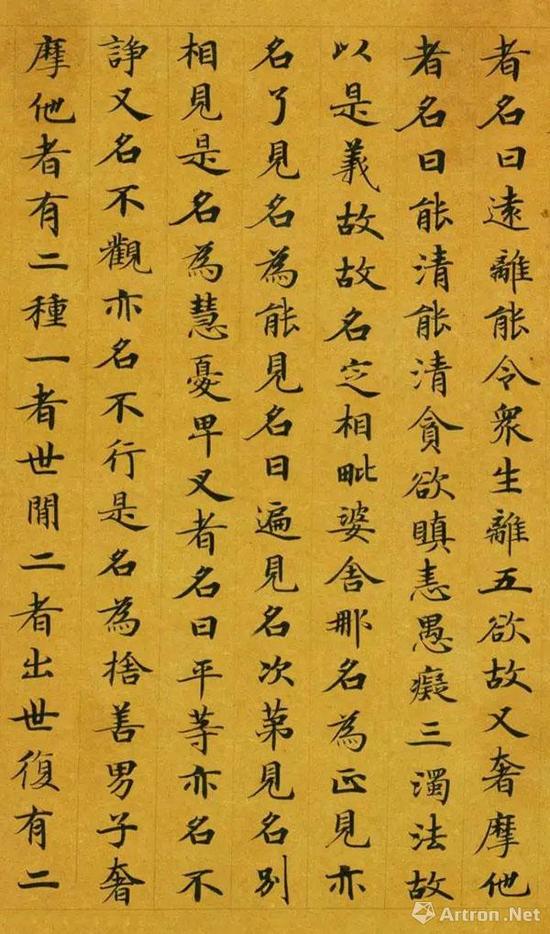 者名曰遠離能令眾生離五欲故又奢摩他
者名曰能清能清貪欲瞋恚愚癡三濁法故
以是義故故名定相毗婆舍那名為正見亦
名了見名為能見名曰遍見名次第見名別
相見是名為慧憂畢叉者名曰平等亦名不
諍又名不觀亦名不行是名為捨善男子奢
摩他者有二種一者世間二者出世復有二
Artron.Net